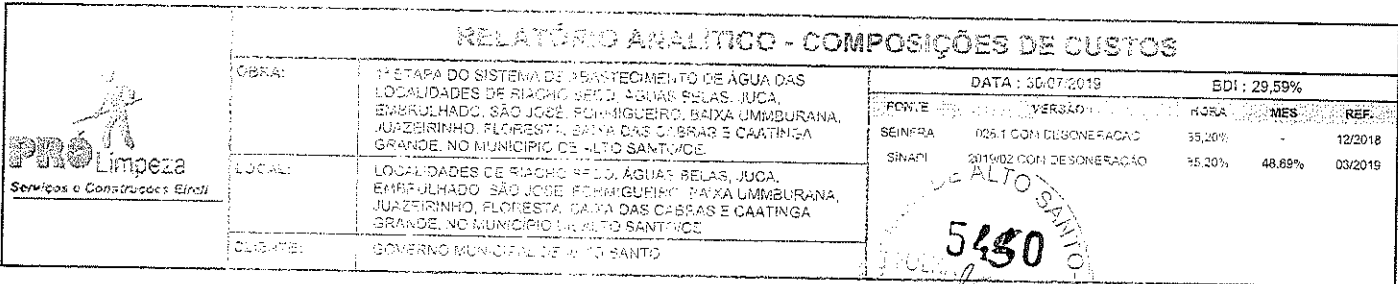 RELATÓRIO ANALÍTICO - COMPOSIÇÕES DE CUSTOS
PRÓ Limpeza
Serviços e Construções Eireli
OBRA:
1ª ETAPA DO SISTEMA DE ABASTECIMENTO DE ÁGUA DAS
LOCALIDADES DE RIACHO SECO, ÁGUAS BELAS, JUCA,
EMBRULHADO, SÃO JOSÉ, FORMIGUEIRO, BAIXA UMMBURANA,
JUAZEIRINHO, FLORESTA, BAIXA DAS CABRAS E CAATINGA
GRANDE, NO MUNICIPIO DE ALTO SANTO/CE
LOCAL:
LOCALIDADES DE RIACHO SECO, ÁGUAS BELAS, JUCA,
EMBRULHADO, SÃO JOSÉ, FORMIGUEIRO, BAIXA UMMBURANA,
JUAZEIRINHO, FLORESTA, BAIXA DAS CABRAS E CAATINGA
GRANDE, NO MUNICIPIO DE ALTO SANTO/CE
CLIENTE:
GOVERNO MUNICIPAL DE ALTO SANTO
DATA : 30/07/2019 BDI : 29,59%
FONTE VERSÃO HORA MES REF.
SEINFRA 026.1 COM DESONERAÇÃO 85,20% - 12/2018
SINAPI 2019/02 COM DESONERAÇÃO 85,20% 48,69% 03/2019
DE ALTO SANTO-